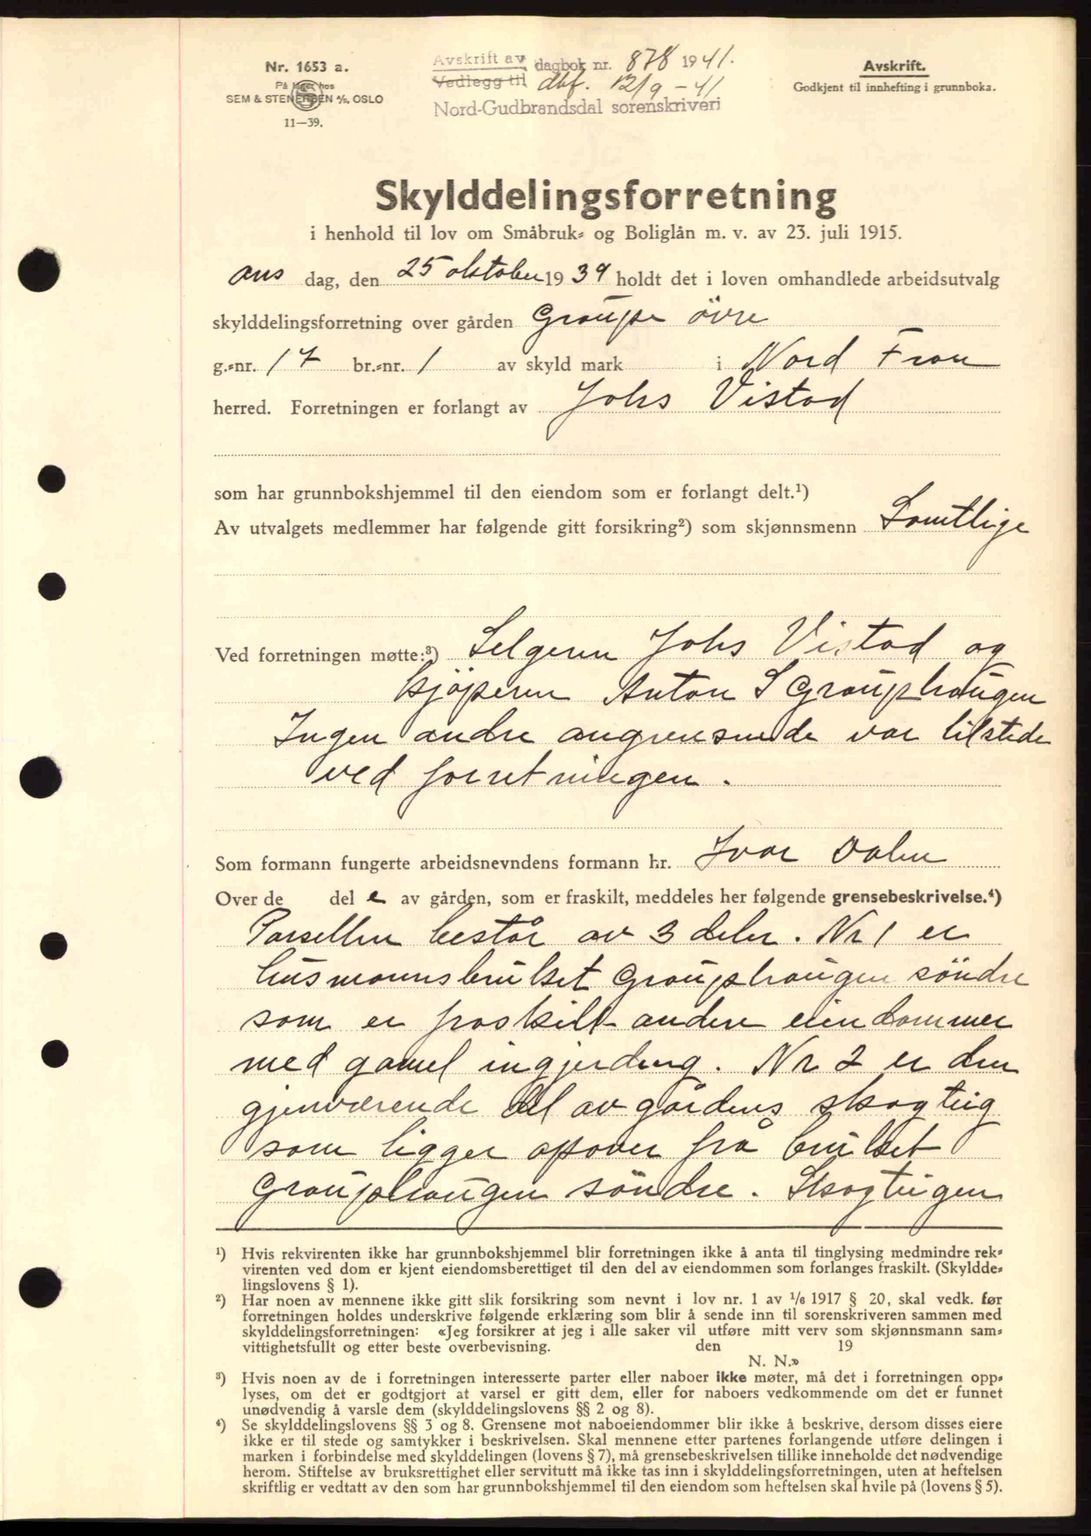 Nr. 1653 a.
På lager hos
SEM & STENERSEN A/S, OSLO
11—39.
Avskrift av dagbok nr. 878 1941.
Vedlegg til dbf. 12/9 - 41
Nord-Gudbrandsdal sorenskriveri
Avskrift.
Godkjent til innhefting i grunnboka.
Skylddelingsforretning
i henhold til lov om Småbruk- og Boliglån m. v. av 23. juli 1915.
ons dag, den 25 oktober 1939 holdt det i loven omhandlede arbeidsutvalg
skylddelingsforretning over gården Graupe övre
g.-nr. 17 br.-nr. 1 av skyld mark i Nord Fron
herred. Forretningen er forlangt av Johs Vistad
som har grunnbokshjemmel til den eiendom som er forlangt delt.¹)
Av utvalgets medlemmer har følgende gitt forsikring²) som skjønnsmenn Samtlige
Ved forretningen møtte:³) Selgeren Johs Vistad og
kjöperen Anton S Grouphaugen
Ingen andre angrensende var tilstede
ved forretningen.
Som formann fungerte arbeidsnevndens formann hr. Ivar Dalen
Over de del e av gården, som er fraskilt, meddeles her følgende grensebeskrivelse.⁴)
Parsellen består av 3 deler. Nr 1 er
husmannsbruket Grouphaugen söndre
som er fraskilt andre eiendommer
med gamel ingjerding. Nr 2 er den
gjenværende del av gårdens skogteig
som ligger opover frå bruket
Grouphaugen söndre. Skogteigen
¹) Hvis rekvirenten ikke har grunnbokshjemmel blir forretningen ikke å anta til tinglysing medmindre rek-
virenten ved dom er kjent eiendomsberettiget til den del av eiendommen som forlanges fraskilt. (Skyldde-
lingslovens § 1).
²) Har noen av mennene ikke gitt slik forsikring som nevnt i lov nr. 1 av 1/6 1917 § 20, skal vedk. før
forretningen holdes underskrive følgende erklæring som blir å sende inn til sorenskriveren sammen med
skylddelingsforretningen: «Jeg forsikrer at jeg i alle saker vil utføre mitt verv som skjønnsmann sam-
vittighetsfullt og etter beste overbevisning. den 19
N. N.»
³) Hvis noen av de i forretningen interesserte parter eller naboer ikke møter, må det i forretningen opp-
lyses, om det er godtgjort at varsel er gitt dem, eller for naboers vedkommende om det er funnet
unødvendig å varsle dem (skylddelingslovens §§ 2 og 8).
⁴) Se skylddelingslovens §§ 3 og 8. Grensene mot naboeiendommer blir ikke å beskrive, dersom disses eiere
ikke er til stede og samtykker i beskrivelsen. Skal mennene etter partenes forlangende utføre delingen i
marken i forbindelse med skylddelingen (lovens § 7), må grensebeskrivelsen tillike inneholde det nødvendige
herom. Stiftelse av bruksrettighet eller servitutt må ikke tas inn i skylddelingsforretningen, uten at heftelsen
skriftlig er vedtatt av den som har grunnbokshjemmel til den eiendom som heftelsen skal hvile på (lovens § 5).